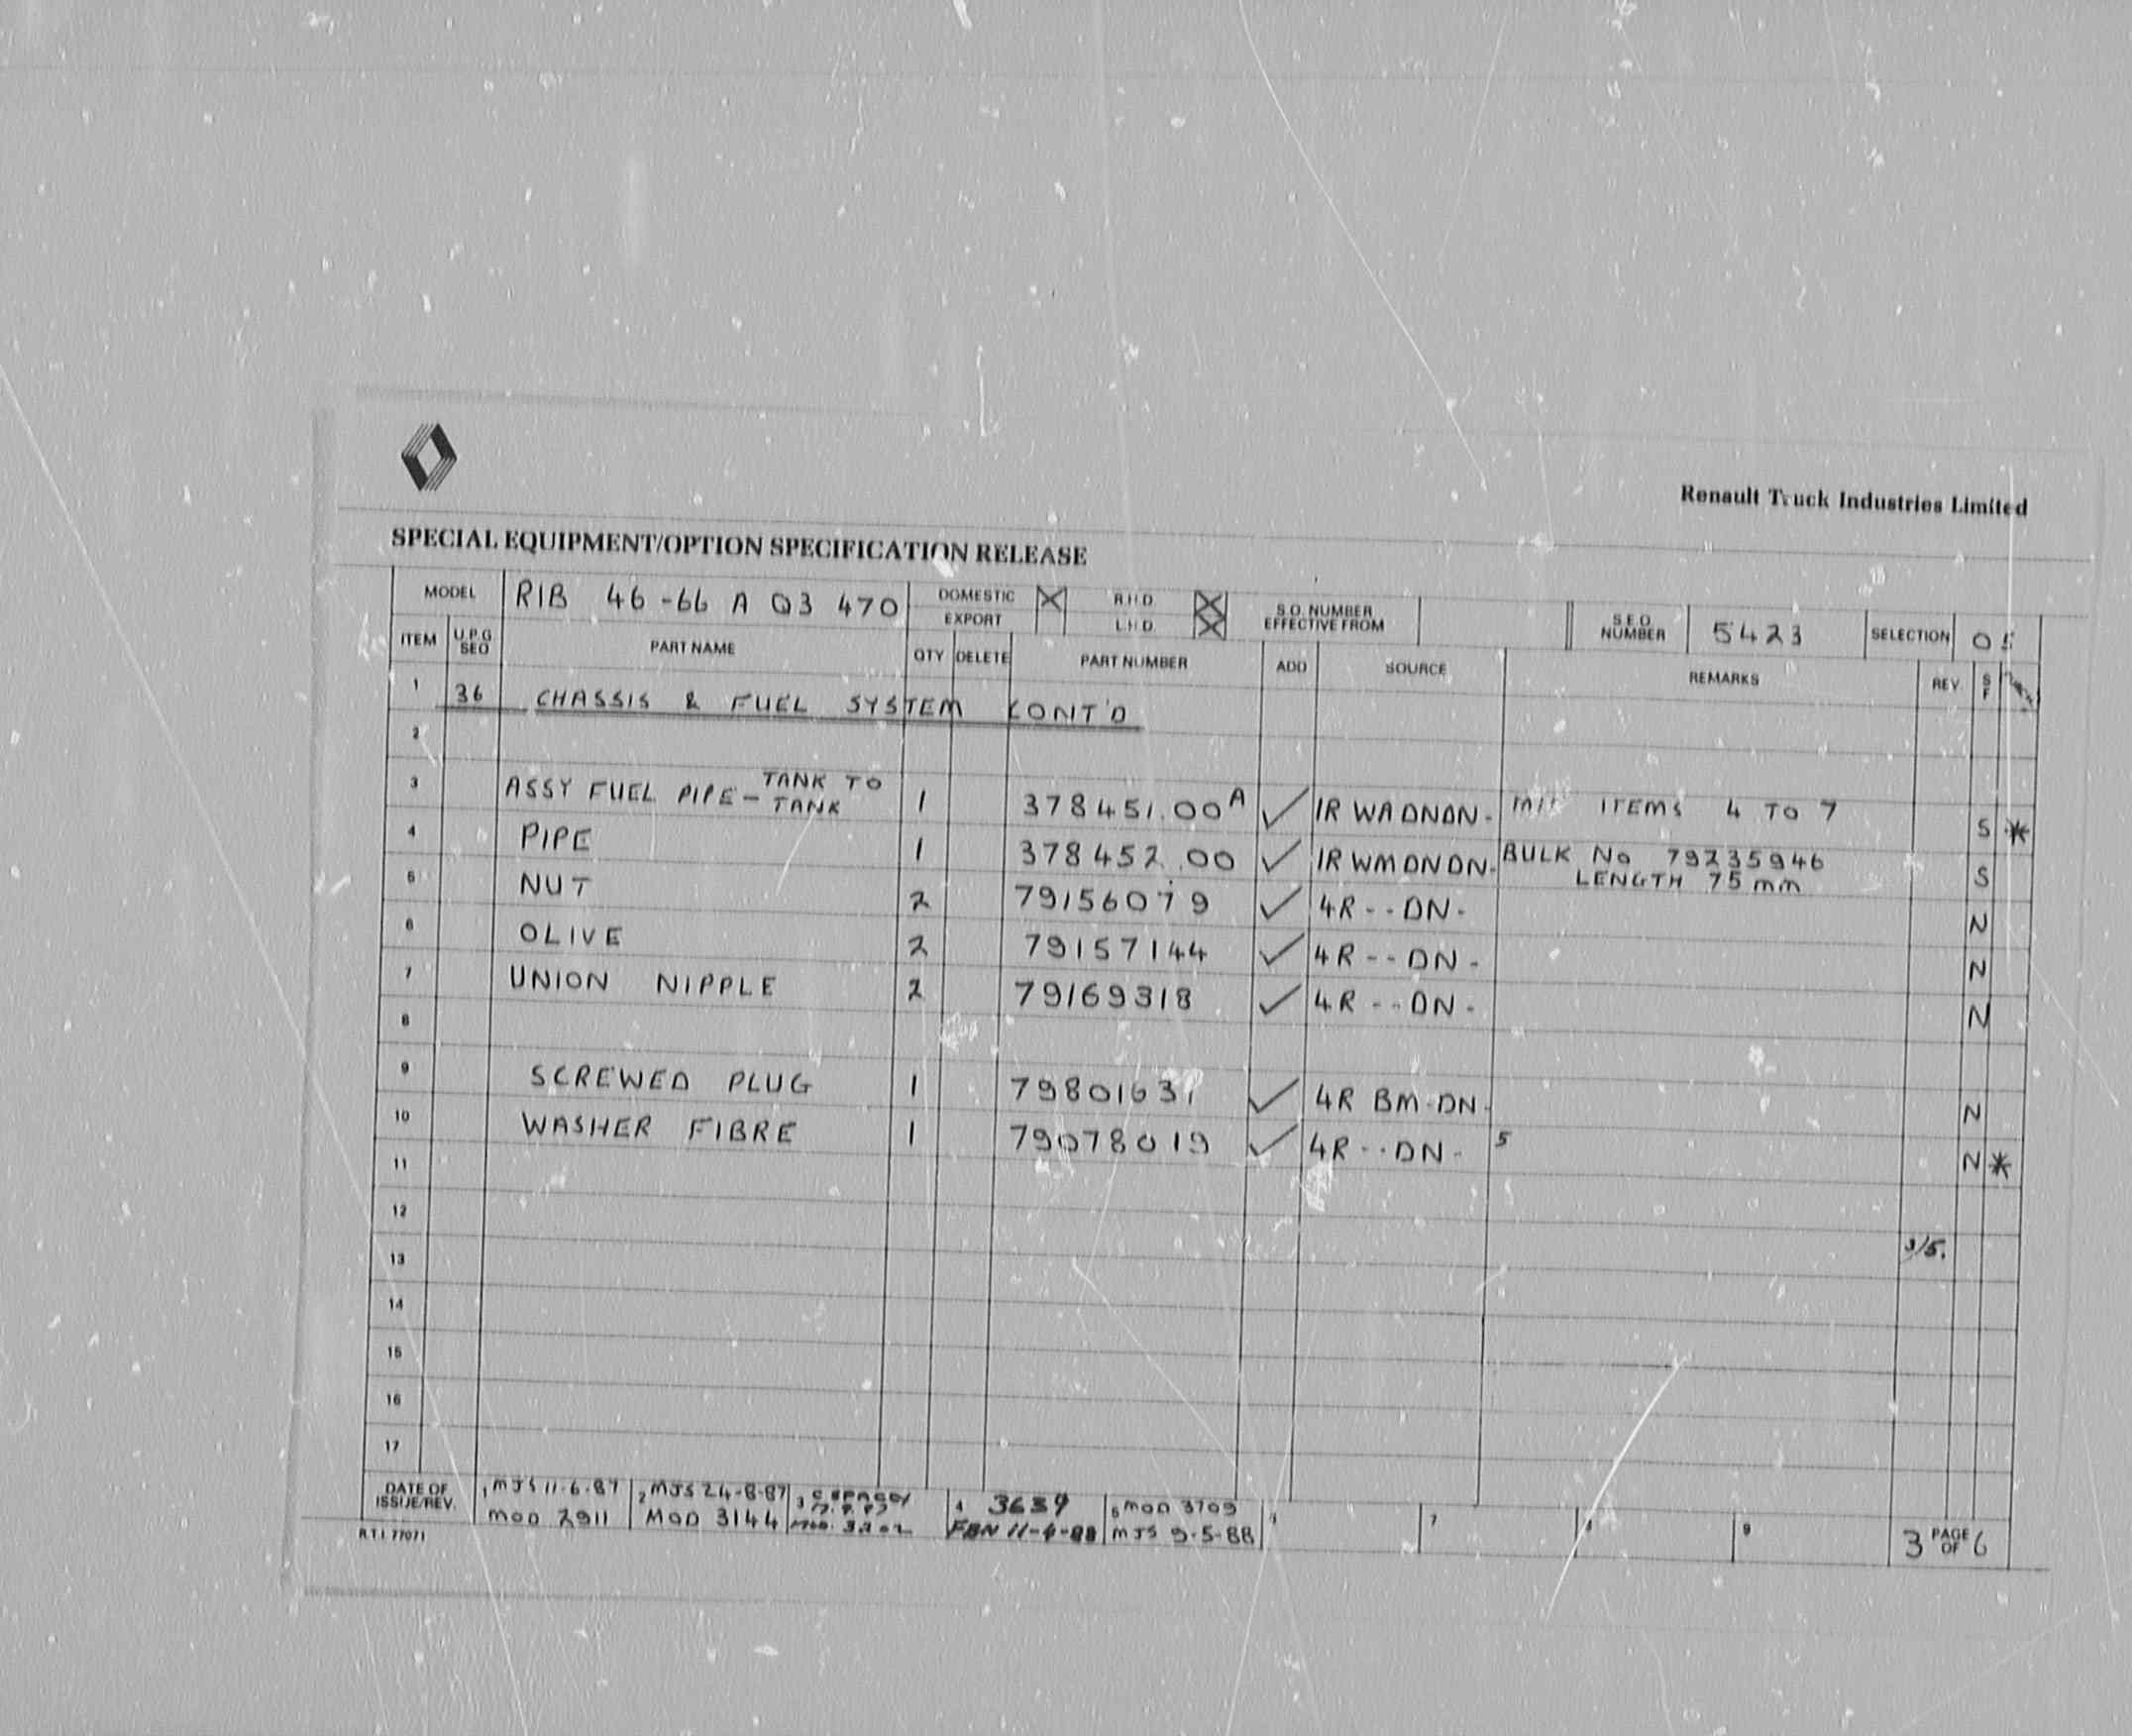 Renault Truck Industries Limited
SPECIAL EQUIPMENT/OPTION SPECIFICATION RELEASE
MODEL RIB 46-66 A Q3 470 DOMESTIC R.H.D. S.O. NUMBER EFFECTIVE FROM S.E.O. NUMBER 5423 SELECTION 05
EXPORT L.H.D.
ITEM U.P.G SEO PART NAME QTY DELETE PART NUMBER ADD SOURCE REMARKS REV. S F
1 36 CHASSIS & FUEL SYSTEM CONT'D
2
3 ASSY FUEL PIPE - TANK TO TANK 1 378451.00 A ✓ 1R WADNDN- ITEMS 4 TO 7 S *
4 PIPE 1 378452.00 ✓ 1R WMDNDN- BULK No 79235946 S
LENGTH 75mm
5 NUT 2 79156079 ✓ 4R--DN- N
6 OLIVE 2 79157144 ✓ 4R--DN- N
7 UNION NIPPLE 2 79169318 ✓ 4R--DN- N
8
9 SCREWED PLUG 1 79801631 ✓ 4R BM-DN- N
10 WASHER FIBRE 1 79078019 ✓ 4R--DN- 5 N *
11
12
13 3/5.
14
15
16
17
DATE OF ISSUE/REV. 1 MJS 11-6-87 2 MJS 24-8-87 3 4 3639 5 MOD 3709 6 7 8 9 3 PAGE OF 6
MOD 2911 MOD 3144 MOD. 3202 FBN 11-4-88 MJS 9-5-88
R.T.I. 77071